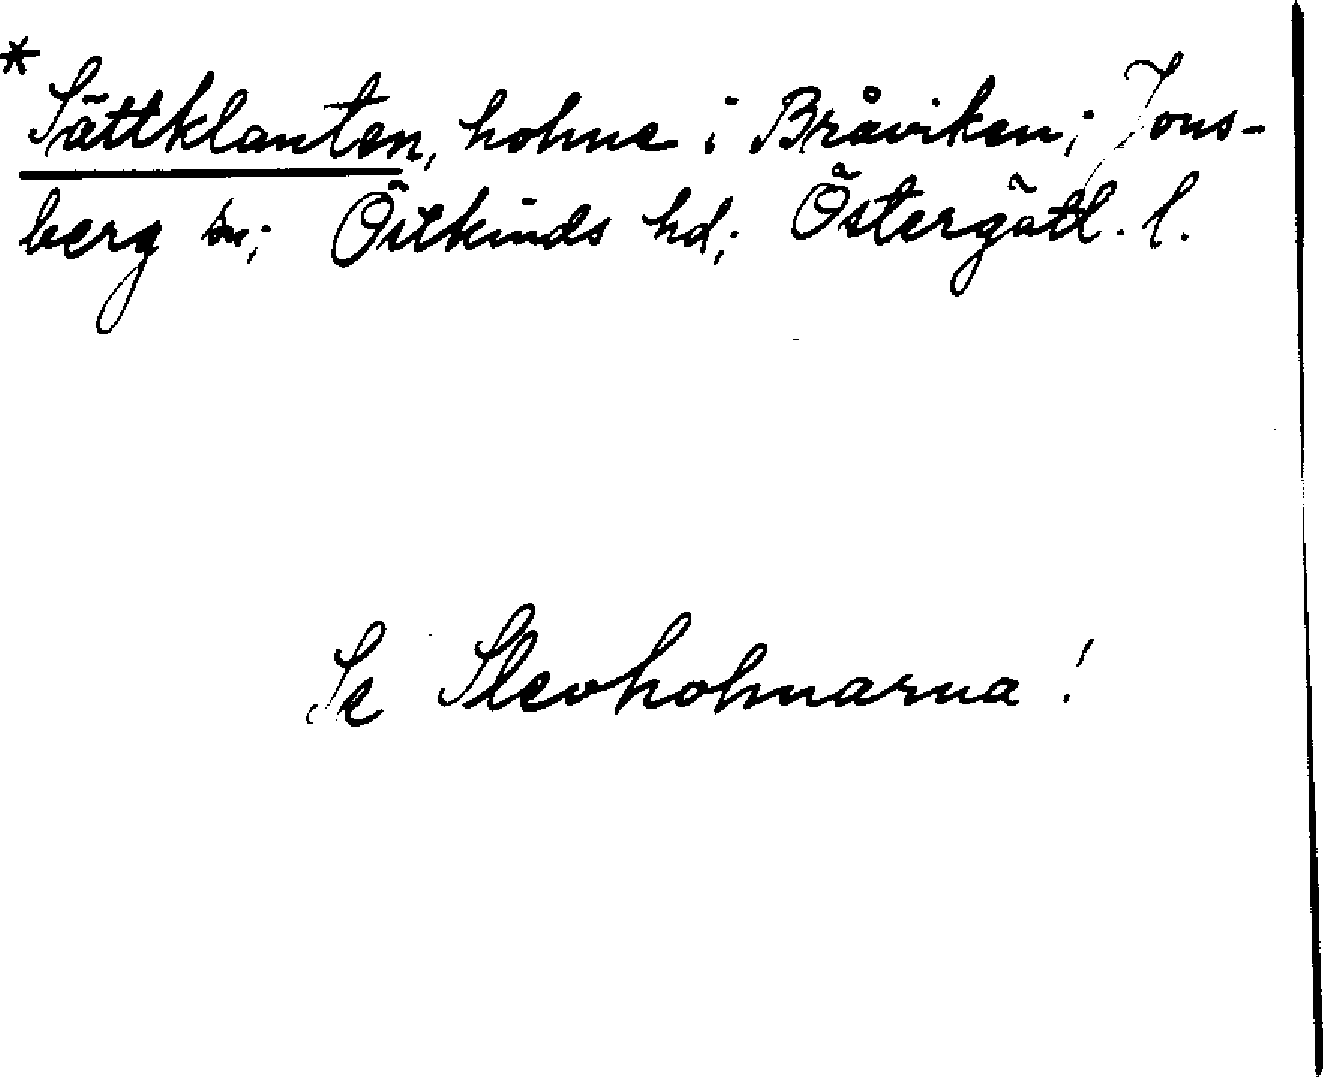 * Sättklanten, holme i Bråviken; Jons-
berg sn; Östkinds hd; Östergötl. l.
Se Slevholmarna!